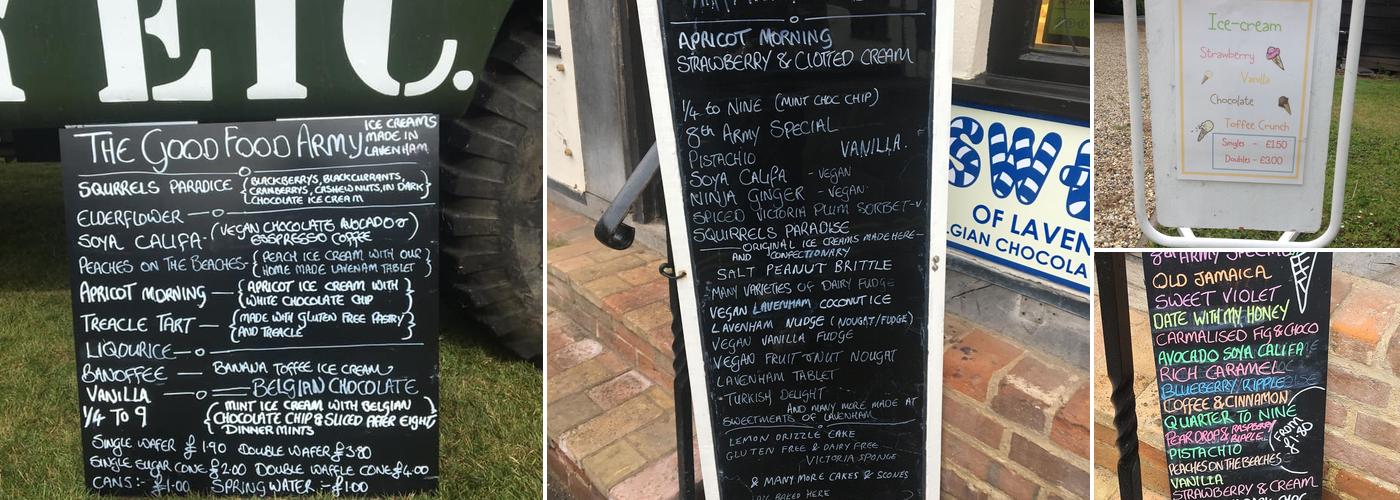 ETC.
THE GOOD FOOD ARMY
ICE CREAMS
MADE IN
LAVENHAM
SQUIRRELS PARADICE
BLACKBERRYS, BLACKCURRANTS,
CRANBERRYS, CASHEW NUTS, IN DARK
CHOCOLATE ICE CREAM
ELDERFLOWER
SOYA CALIFA - (VEGAN CHOCOLATE AVOCADO &
ESSPRESSO COFFEE)
PEACHES ON THE BEACHES - PEACH ICE CREAM WITH OUR
HOME MADE LAVENAM TABLET
APRICOT MORNING - APRICOT ICE CREAM WITH
WHITE CHOCOLATE CHIP
TREACLE TART - MADE WITH GLUTEN FREE PASTRY
AND TREACLE
LIQOURICE
BANOFFEE - BANANA TOFFEE ICE CREAM
VANILLA - BELGIAN CHOCOLATE
1/4 TO 9
MINT ICE CREAM WITH BELGIAN
CHOCOLATE CHIP & SLICED AFTER EIGHT
DINNER MINTS
SINGLE WAFER £1.90 DOUBLE WAFER £3.80
SINGLE SUGAR CONE £2.00 DOUBLE WAFFLE CONE £4.00
CANS:- £1.00 SPRING WATER:- £1.00
APRICOT MORNING
STRAWBERRY & CLOTTED CREAM
1/4 to NINE (MINT CHOC CHIP)
8th ARMY SPECIAL
PISTACHIO VANILLA.
SOYA CALIFA - VEGAN
NINJA GINGER - VEGAN
SPICED VICTORIA PLUM SORBET-V
SQUIRRELS PARADISE
ORIGINAL ICE CREAMS MADE HERE
AND CONFECTIONARY
SALT PEANUT BRITTLE
MANY VARIETIES OF DAIRY FUDGE
VEGAN LAVENHAM COCONUT ICE
LAVENHAM NUDGE (NOUGAT/FUDGE)
VEGAN VANILLA FUDGE
VEGAN FRUIT & NUT NOUGAT
LAVENHAM TABLET
TURKISH DELIGHT
AND MANY MORE MADE AT
SWEETMEATS OF LAVENHAM
LEMON DRIZZLE CAKE
GLUTEN FREE & DAIRY FREE
VICTORIA SPONGE
& MANY MORE CAKES & SCONES
BAKED HERE
SWE
OF LAVEN
LGIAN CHOCOLA
Ice-cream
Strawberry
Vanilla
Chocolate
Toffee Crunch
Singles - £1.50
Doubles - £3.00
8th ARMY SPECIAL
OLD JAMAICA
SWEET VIOLET
DATE WITH MY HONEY
CARMALISED FIG & CHOCO
AVOCADO SOYA CALIFA
RICH CARAMEL
BLUEBERRY RIPPLE
COFFEE & CINNAMON
QUARTER TO NINE
PEAR DROP & RASPBERRY
RIPPLE
FROM
£1.80
PISTACHIO
PEACHES ON THE BEACHES
VANILLA
STRAWBERRY & CREAM